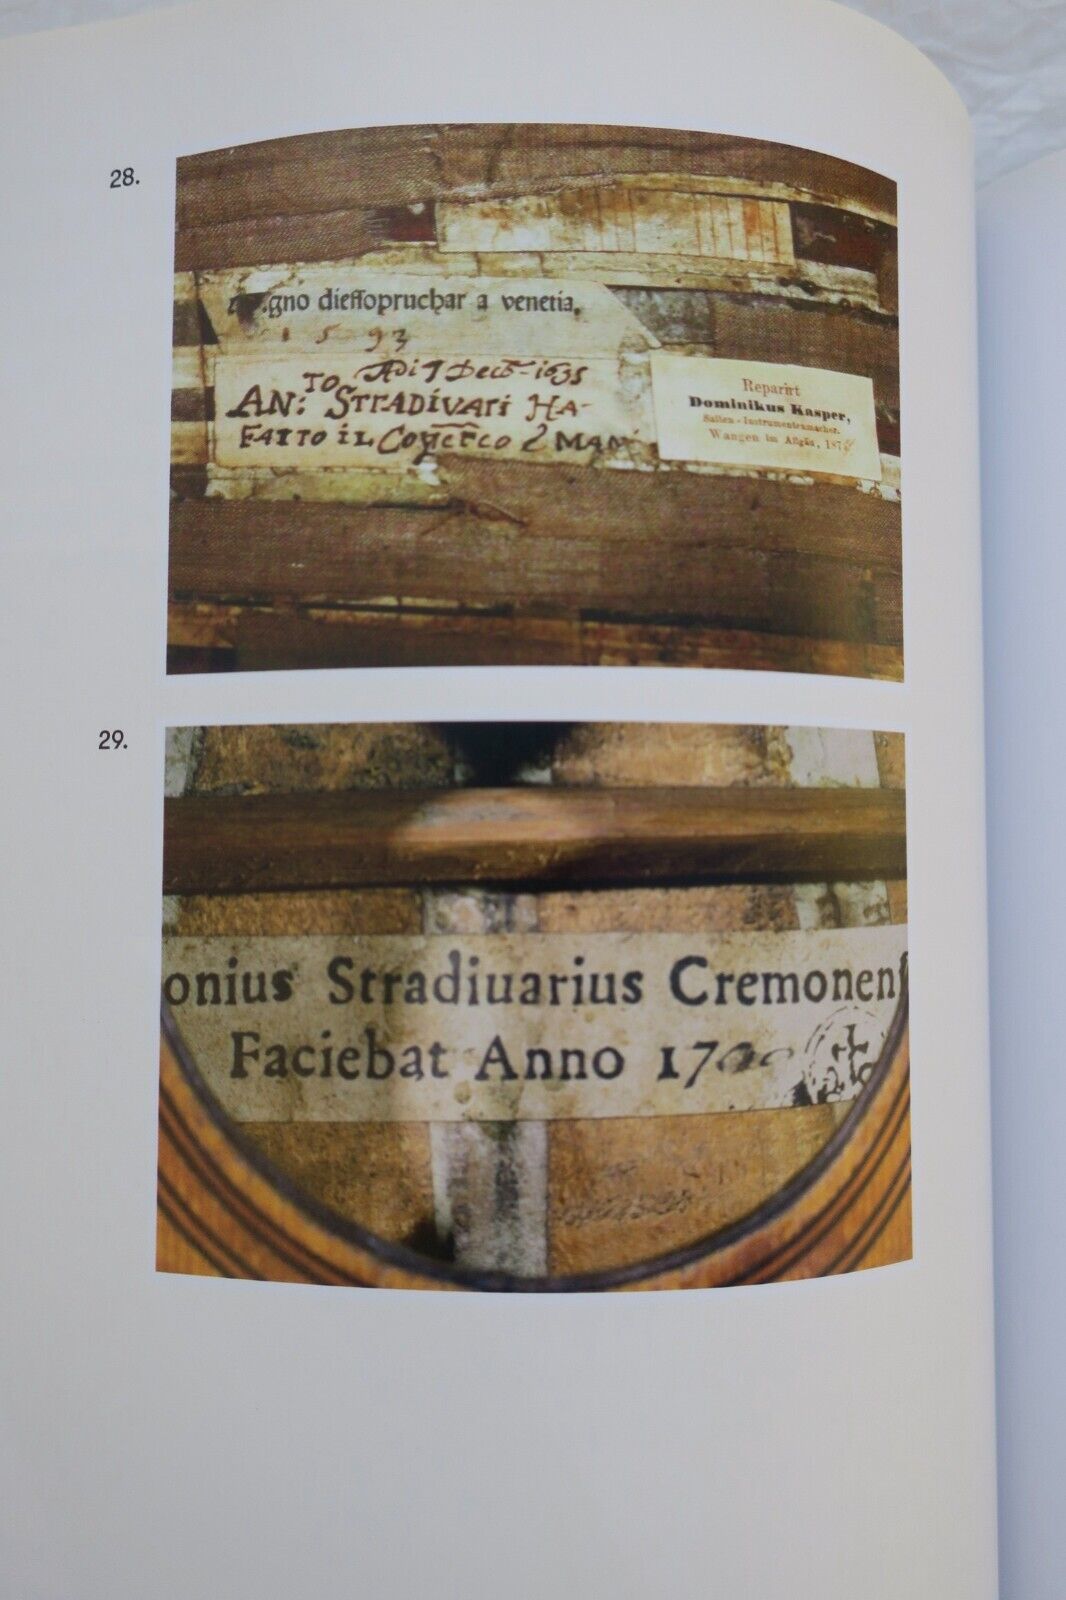 28.
gno dieffopruchar a venetia,
1593
Adi 7 Decē - 1635
AN: TO STRADIVARI HA-
FATTO iL
Reparirt
Dominikus Kasper,
Saiten-Instrumentenmacher.
Wangen im Allgäu, 187
29.
onius Stradiuarius Cremonenſ
Faciebat Anno 1700